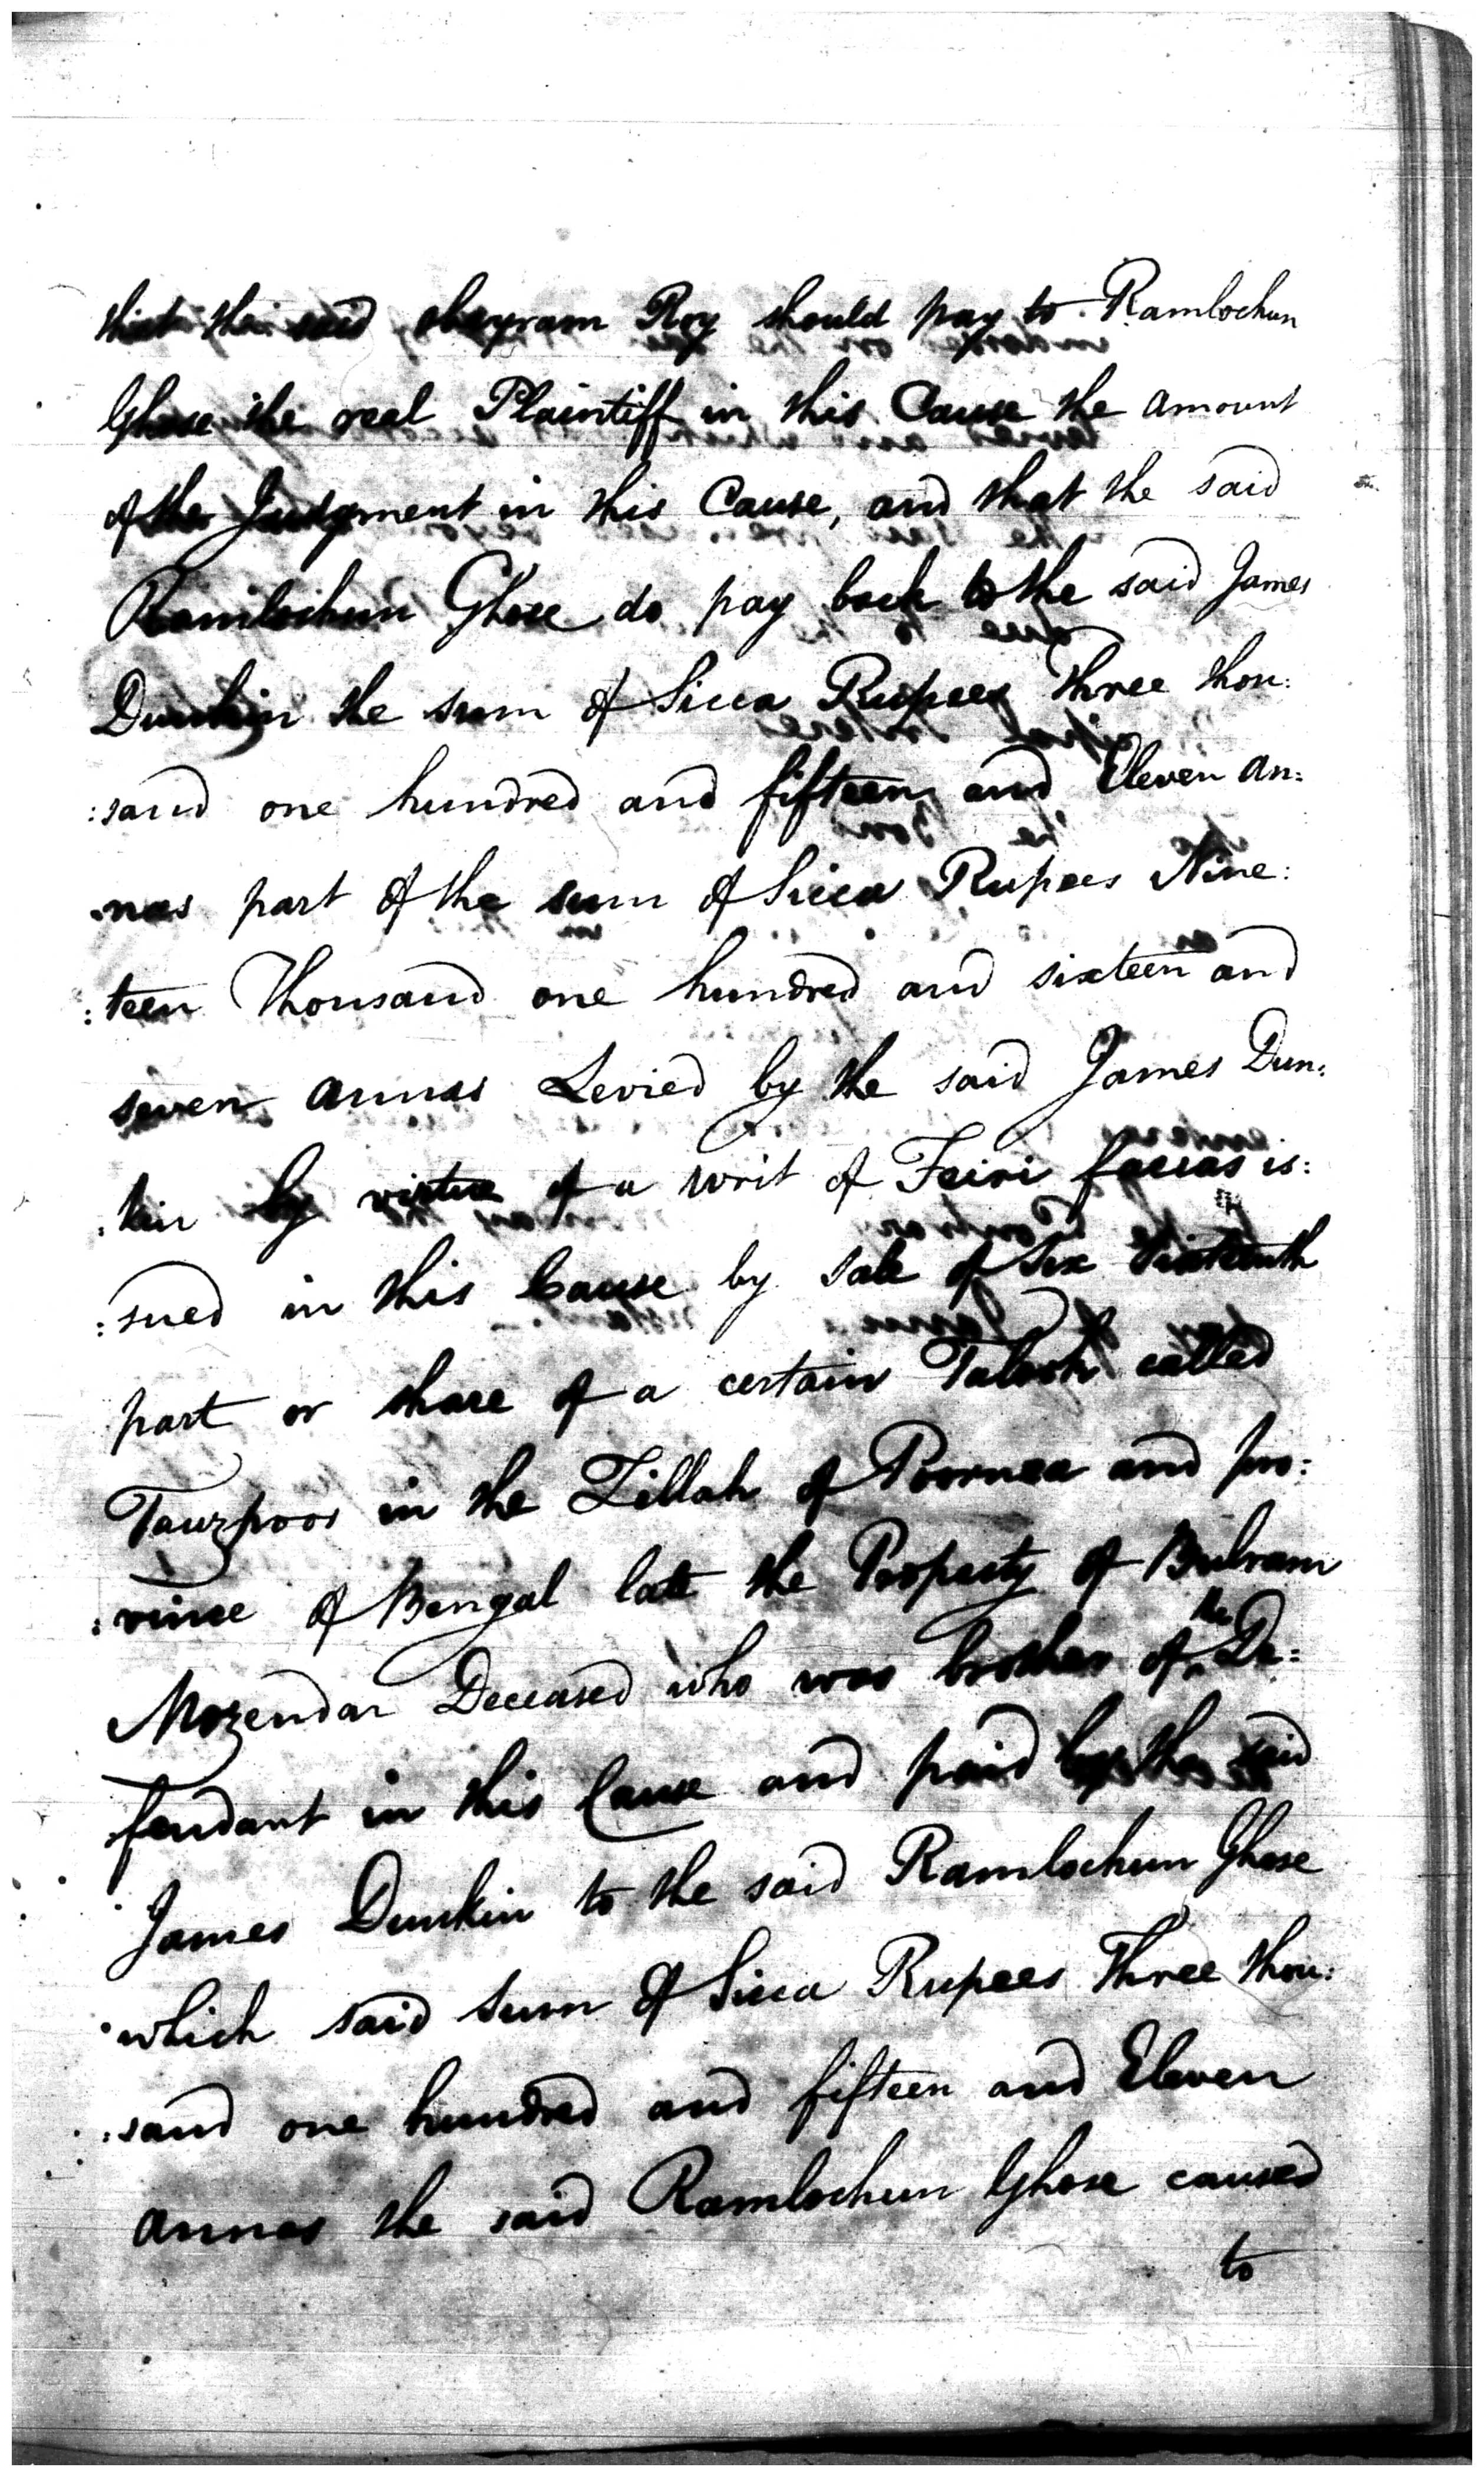 that the said obeyram Roy should pay to Ramlochun
Ghose the real Plaintiff in this Cause the amount
of the Judgment in this Cause, and that the said
Ramlochun Ghose do pay back to the said James
Dunkin the sum of Sicca Rupees Three thou:
:sand one hundred and fifteen and Eleven an:
:nas part of the sum of Sicca Rupees Nine:
:teen Thousand one hundred and sixteen and
seven annas Levied by the said James Dun:
:kin by virtue of a writ of Feiri facias is:
:sued in this Cause by sale of Six Sixteenth
part or share of a certain Talook called
Tauzpoor in the Zillah of Poornea and pro:
:vince of Bengal late the Property of Bulram
Mozendar Deceased who was brother of the De:
:fendant in this Cause and paid by the said
James Dunkin to the said Ramlochun Ghose
which said sum of Sicca Rupees Three thou:
:sand one hundred and fifteen and Eleven
annas the said Ramlochun Ghose caused
to